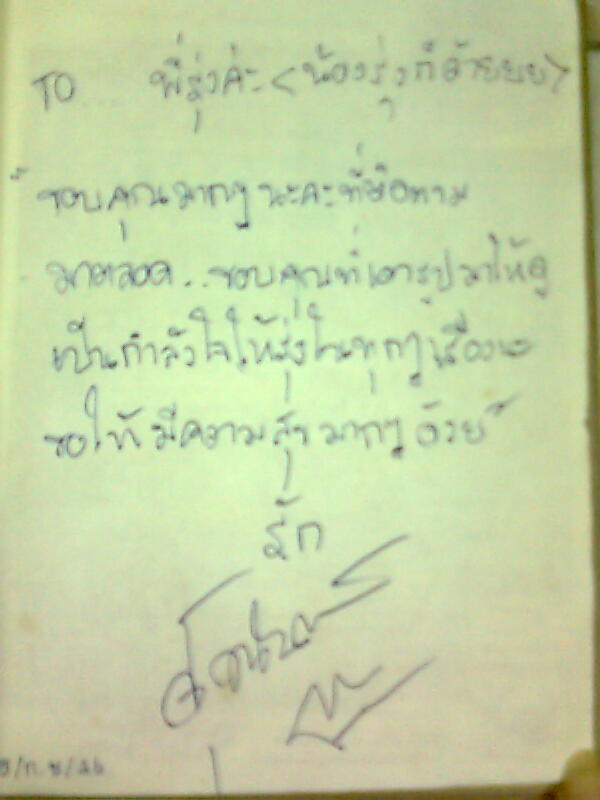 TO พี่รุ่งค่ะ <น้องรุ่งก็ด้วยยย>
"ขอบคุณมากๆ นะคะที่ติดตาม
มาตลอด.. ขอบคุณที่เอารูปมาให้ดู
เป็นกำลังใจให้รุ่งในทุกๆ เรื่อง
ขอให้มีความสุขมากๆ ด้วย"
รัก